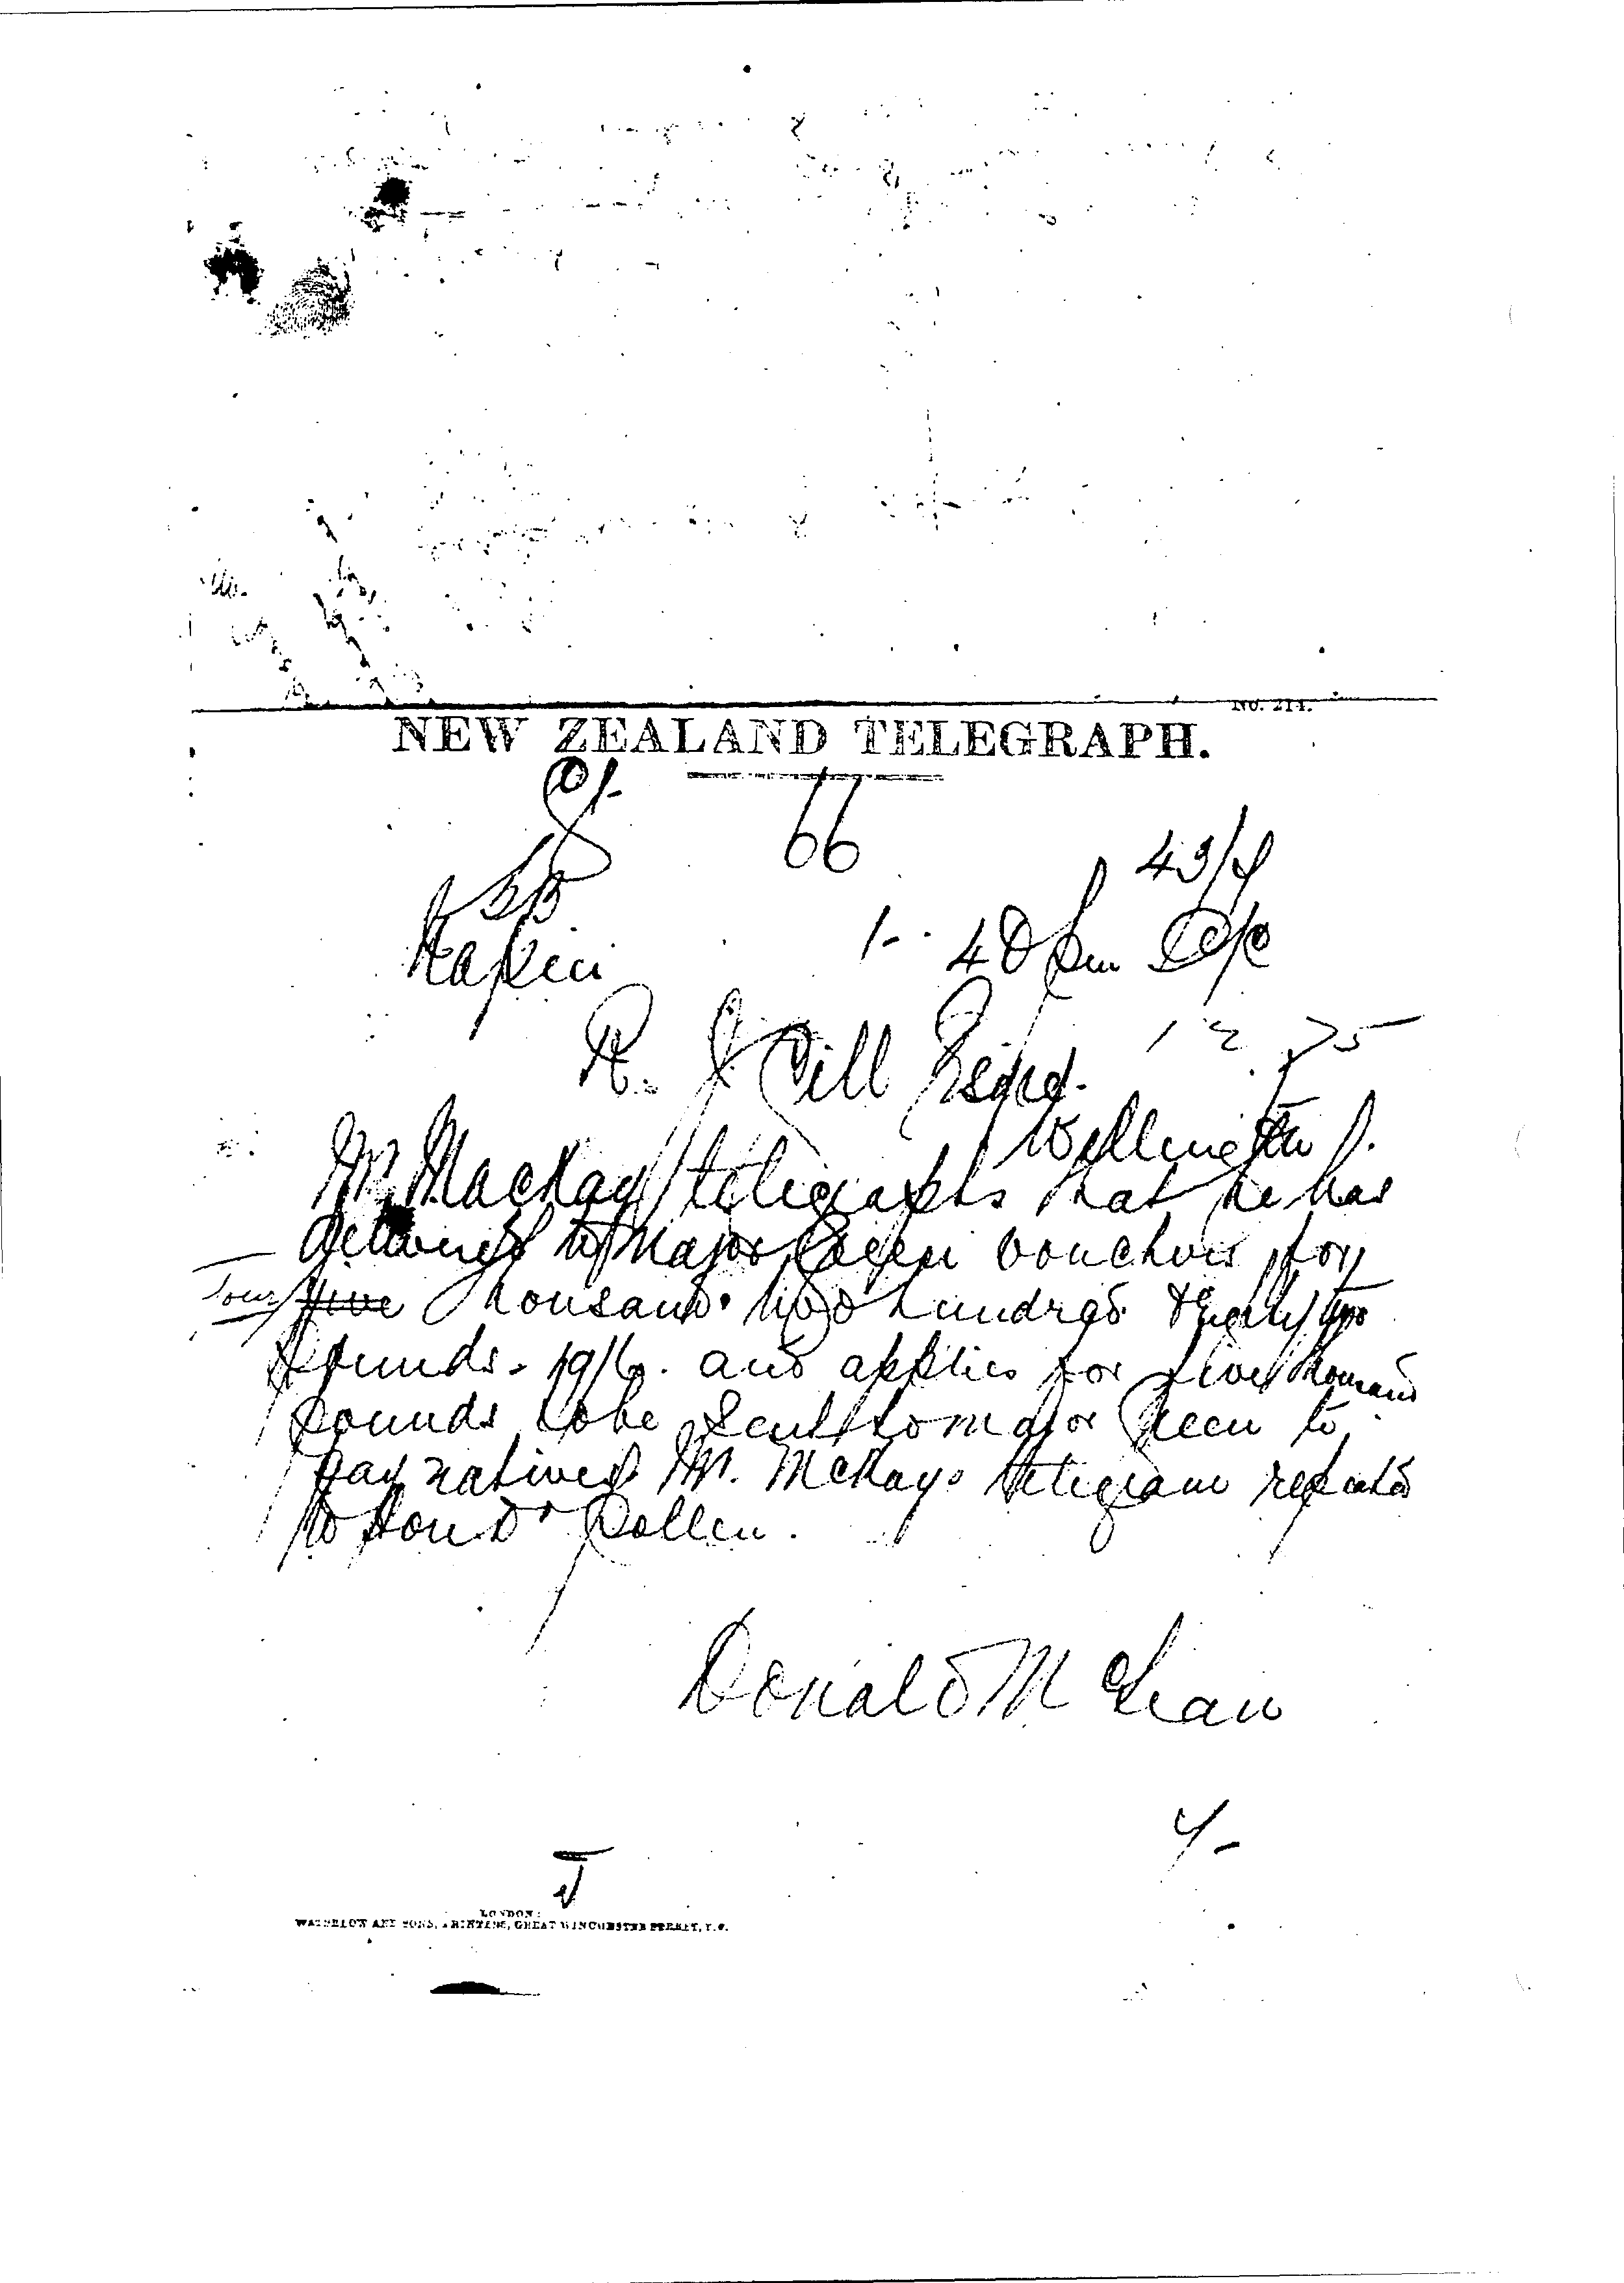 No. 214.
NEW ZEALAND TELEGRAPH.
66
43/4
Napier 1-. 40 pm
R. J Gill Esqre. 1 2 75
Wellington
Mr. Mackay telegraphs that he has
delivered to Major Green vouchers for
Four five thousand. two hundred & thirty two
pounds - 19/6. and applies for five thousand
pounds to be sent to major Green to
pay natives Mr. McKay. telegram repeated
to Hon Dr Pollen.
Donald McLean
LONDON:
WATERLOW AND SONS, PRINTERS, GREAT WINCHESTER STREET, E.C.